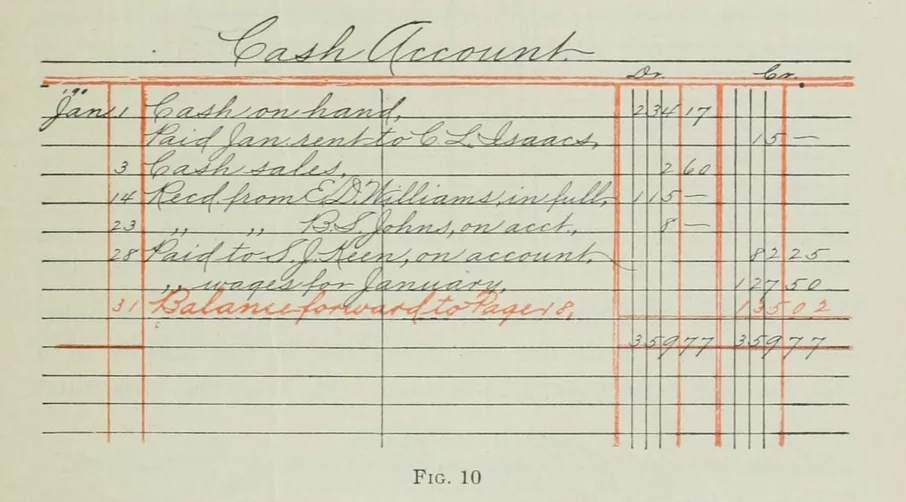 Cash Account.
Dr. Cr.
'90
Jan. 1 Cash on hand, 234 17
Paid Jan. rent to C. L. Isaacs, 15 —
3 Cash sales, 2 60
14 Recd. from E. D. Williams, in full, 115 —
23 ,, ,, B. S. Johns, on acct., 8 —
28 Paid to S. J. Keen, on account, 82 25
,, wages for January, 127 50
31 Balance forward to Page 18, 135 02
359 77 359 77
Fig. 10